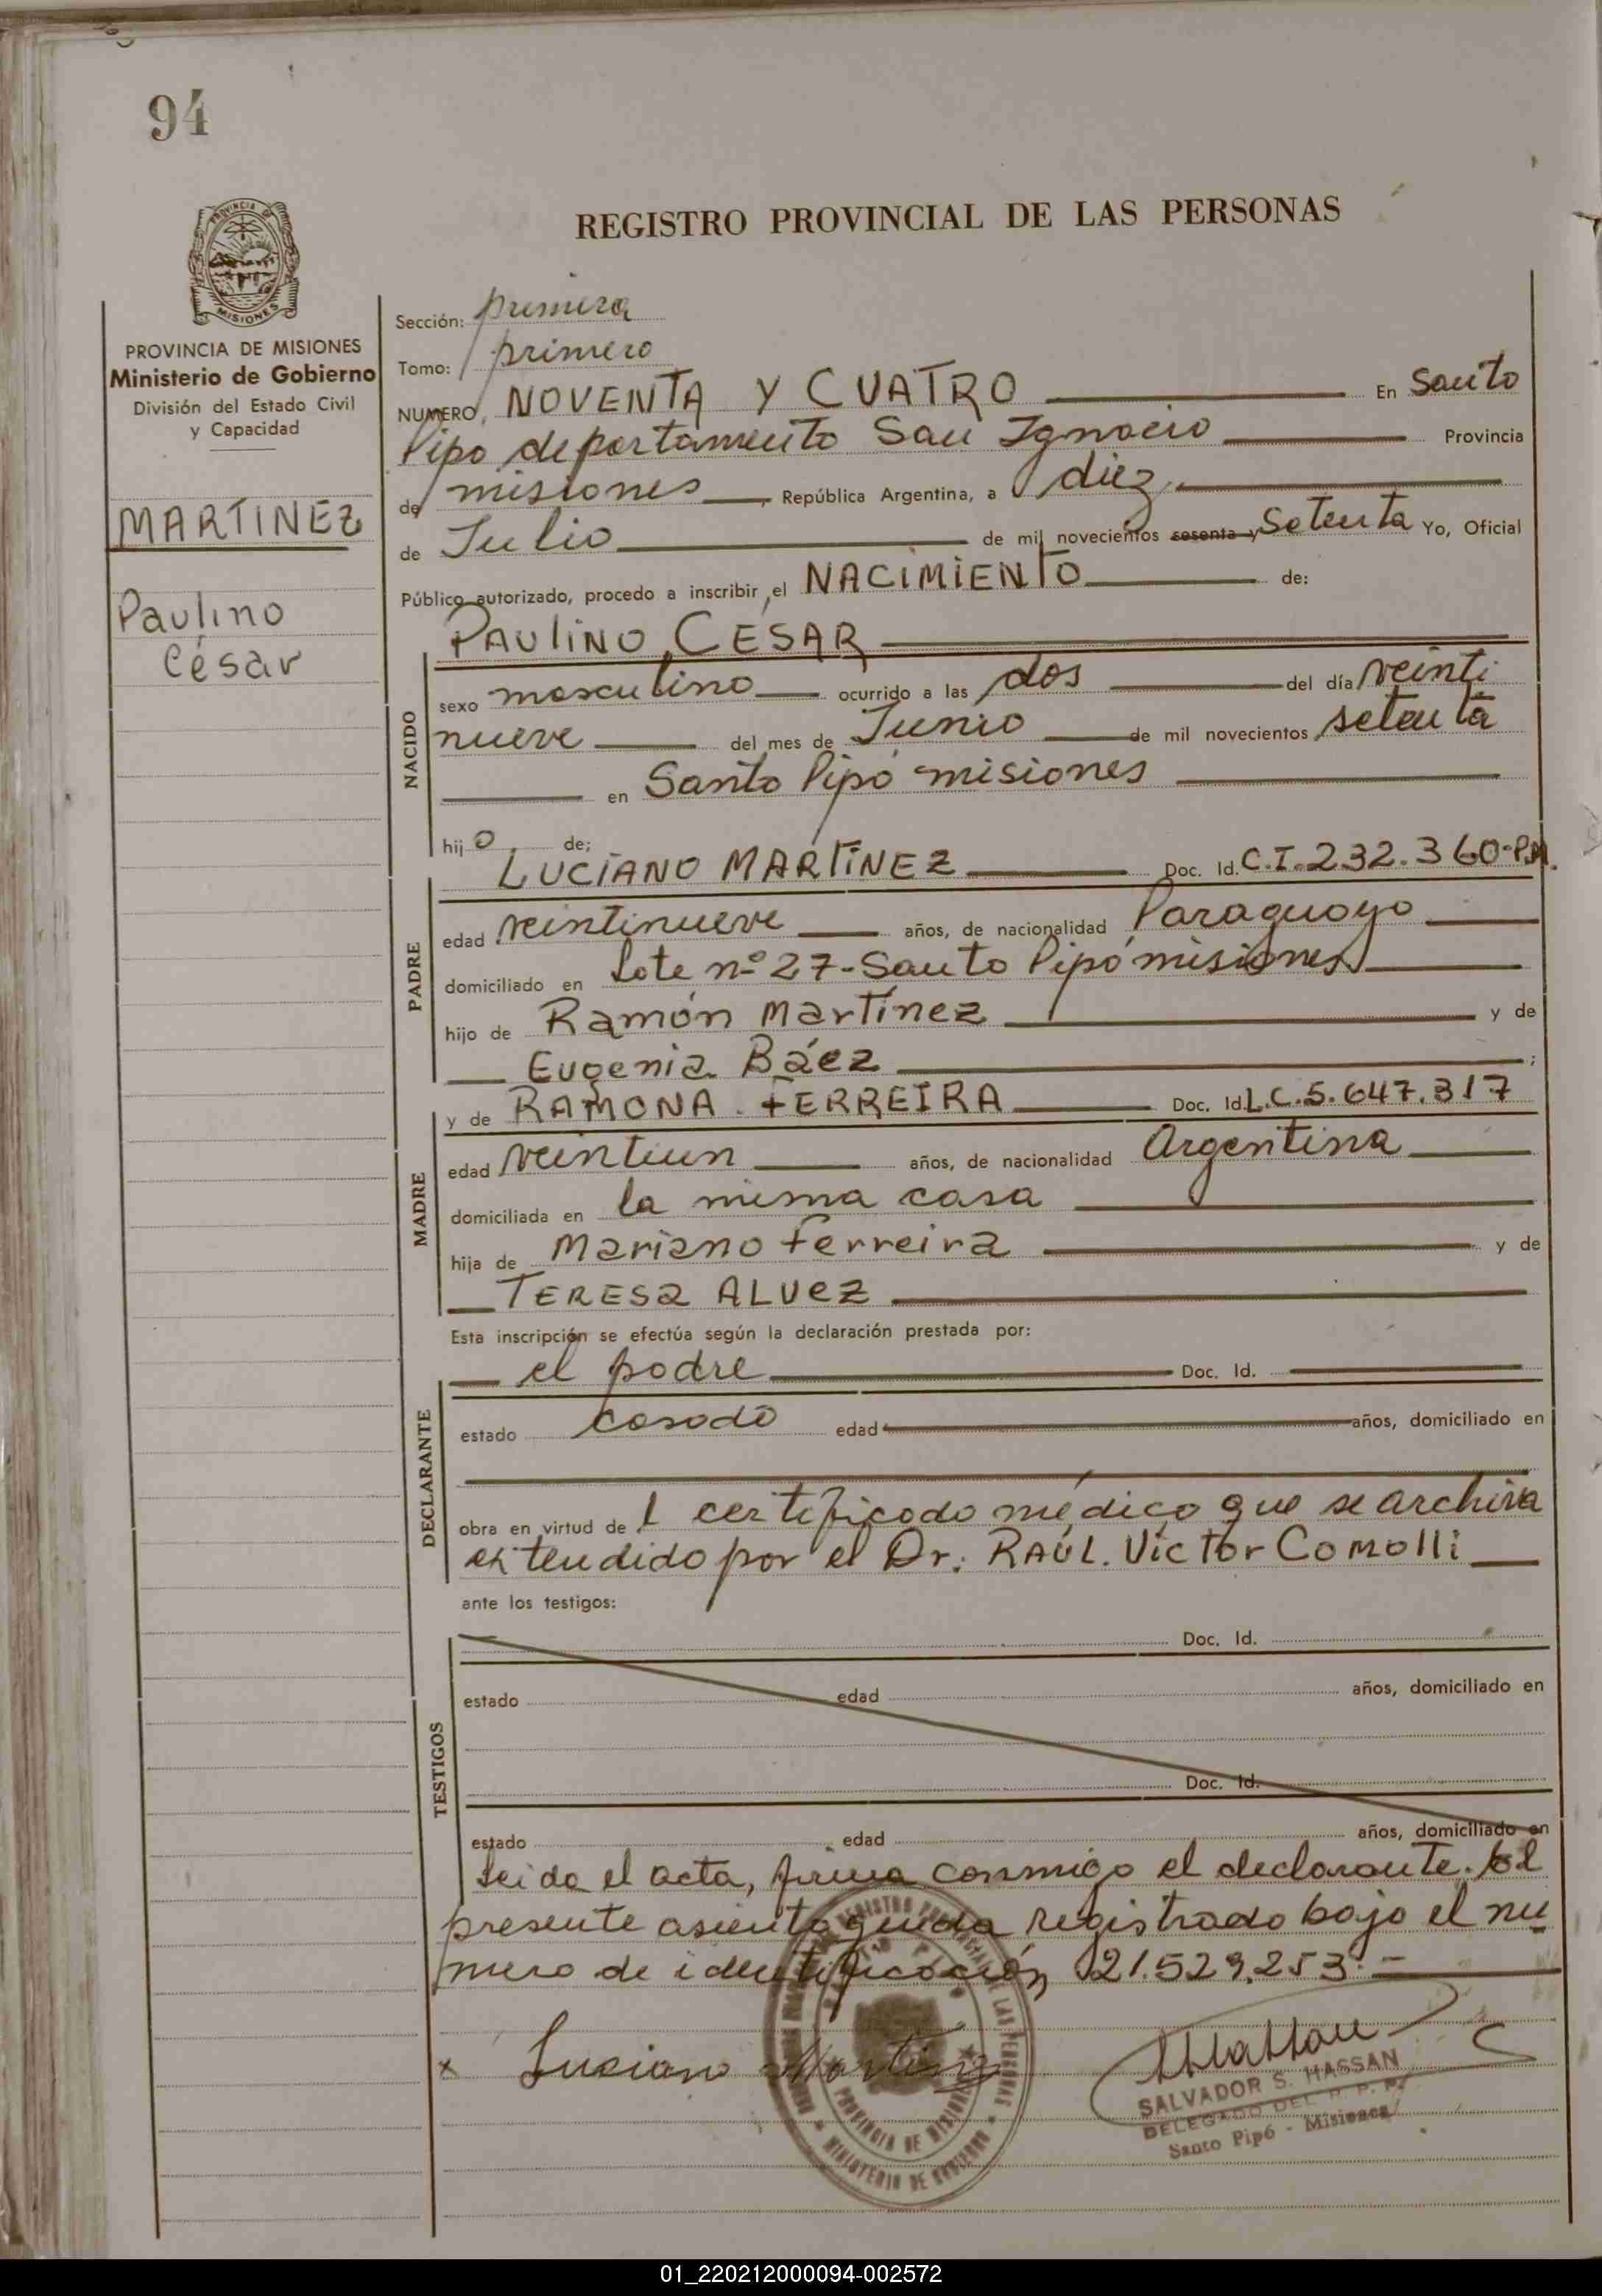 94
PROVINCIA DE
MISIONES
PROVINCIA DE MISIONES
Ministerio de Gobierno
División del Estado Civil
y Capacidad
MARTINEZ
Paulino
César
REGISTRO PROVINCIAL DE LAS PERSONAS
Sección: primera
Tomo: primero
NUMERO, NOVENTA Y CUATRO En Santo
Pipo departamento San Ignacio Provincia
de misiones, República Argentina, a diez,
de Julio de mil novecientos sesenta y Setenta Yo, Oficial
Público autorizado, procedo a inscribir el NACIMIENTO de:
PAULINO CESAR
NACIDO
sexo masculino ocurrido a las dos del día veinti
nueve del mes de Junio de mil novecientos setenta
en Santo Pipó misiones
hijo de;
PADRE
LUCIANO MARTINEZ Doc. Id. C.I.232.360-P.M.
edad veintinueve años, de nacionalidad Paraguayo
domiciliado en Lote nº 27-Santo Pipó misiones
hijo de Ramón Martínez y de
Eugenia Báez ;
MADRE
y de RAMONA FERREIRA Doc. Id. L.C.5.647.317
edad veintiun años, de nacionalidad Argentina
domiciliada en la misma casa
hija de Mariano Ferreira y de
TERESA ALVEZ
Esta inscripción se efectúa según la declaración prestada por:
DECLARANTE
el padre Doc. Id.
estado casado edad años, domiciliado en
obra en virtud de l certificado médico que se archiva
extendido por el Dr. RAÚL. Víctor Comolli
ante los testigos:
TESTIGOS
Doc. Id.
estado edad años, domiciliado en
Doc. Id.
estado edad años, domiciliado en
Leida el acta, firma conmigo el declarante. El
presente asiento queda registrado bajo el nu
mero de identificación 21.529.253.-
x Luciano Martinez
SALVADOR S. HASSAN
DELEGADO DEL R. P. P.
Santo Pipó - Misiones
PROVINCIA DE MISIONES
MINISTERIO DE GOBIERNO
01_220212000094-002572